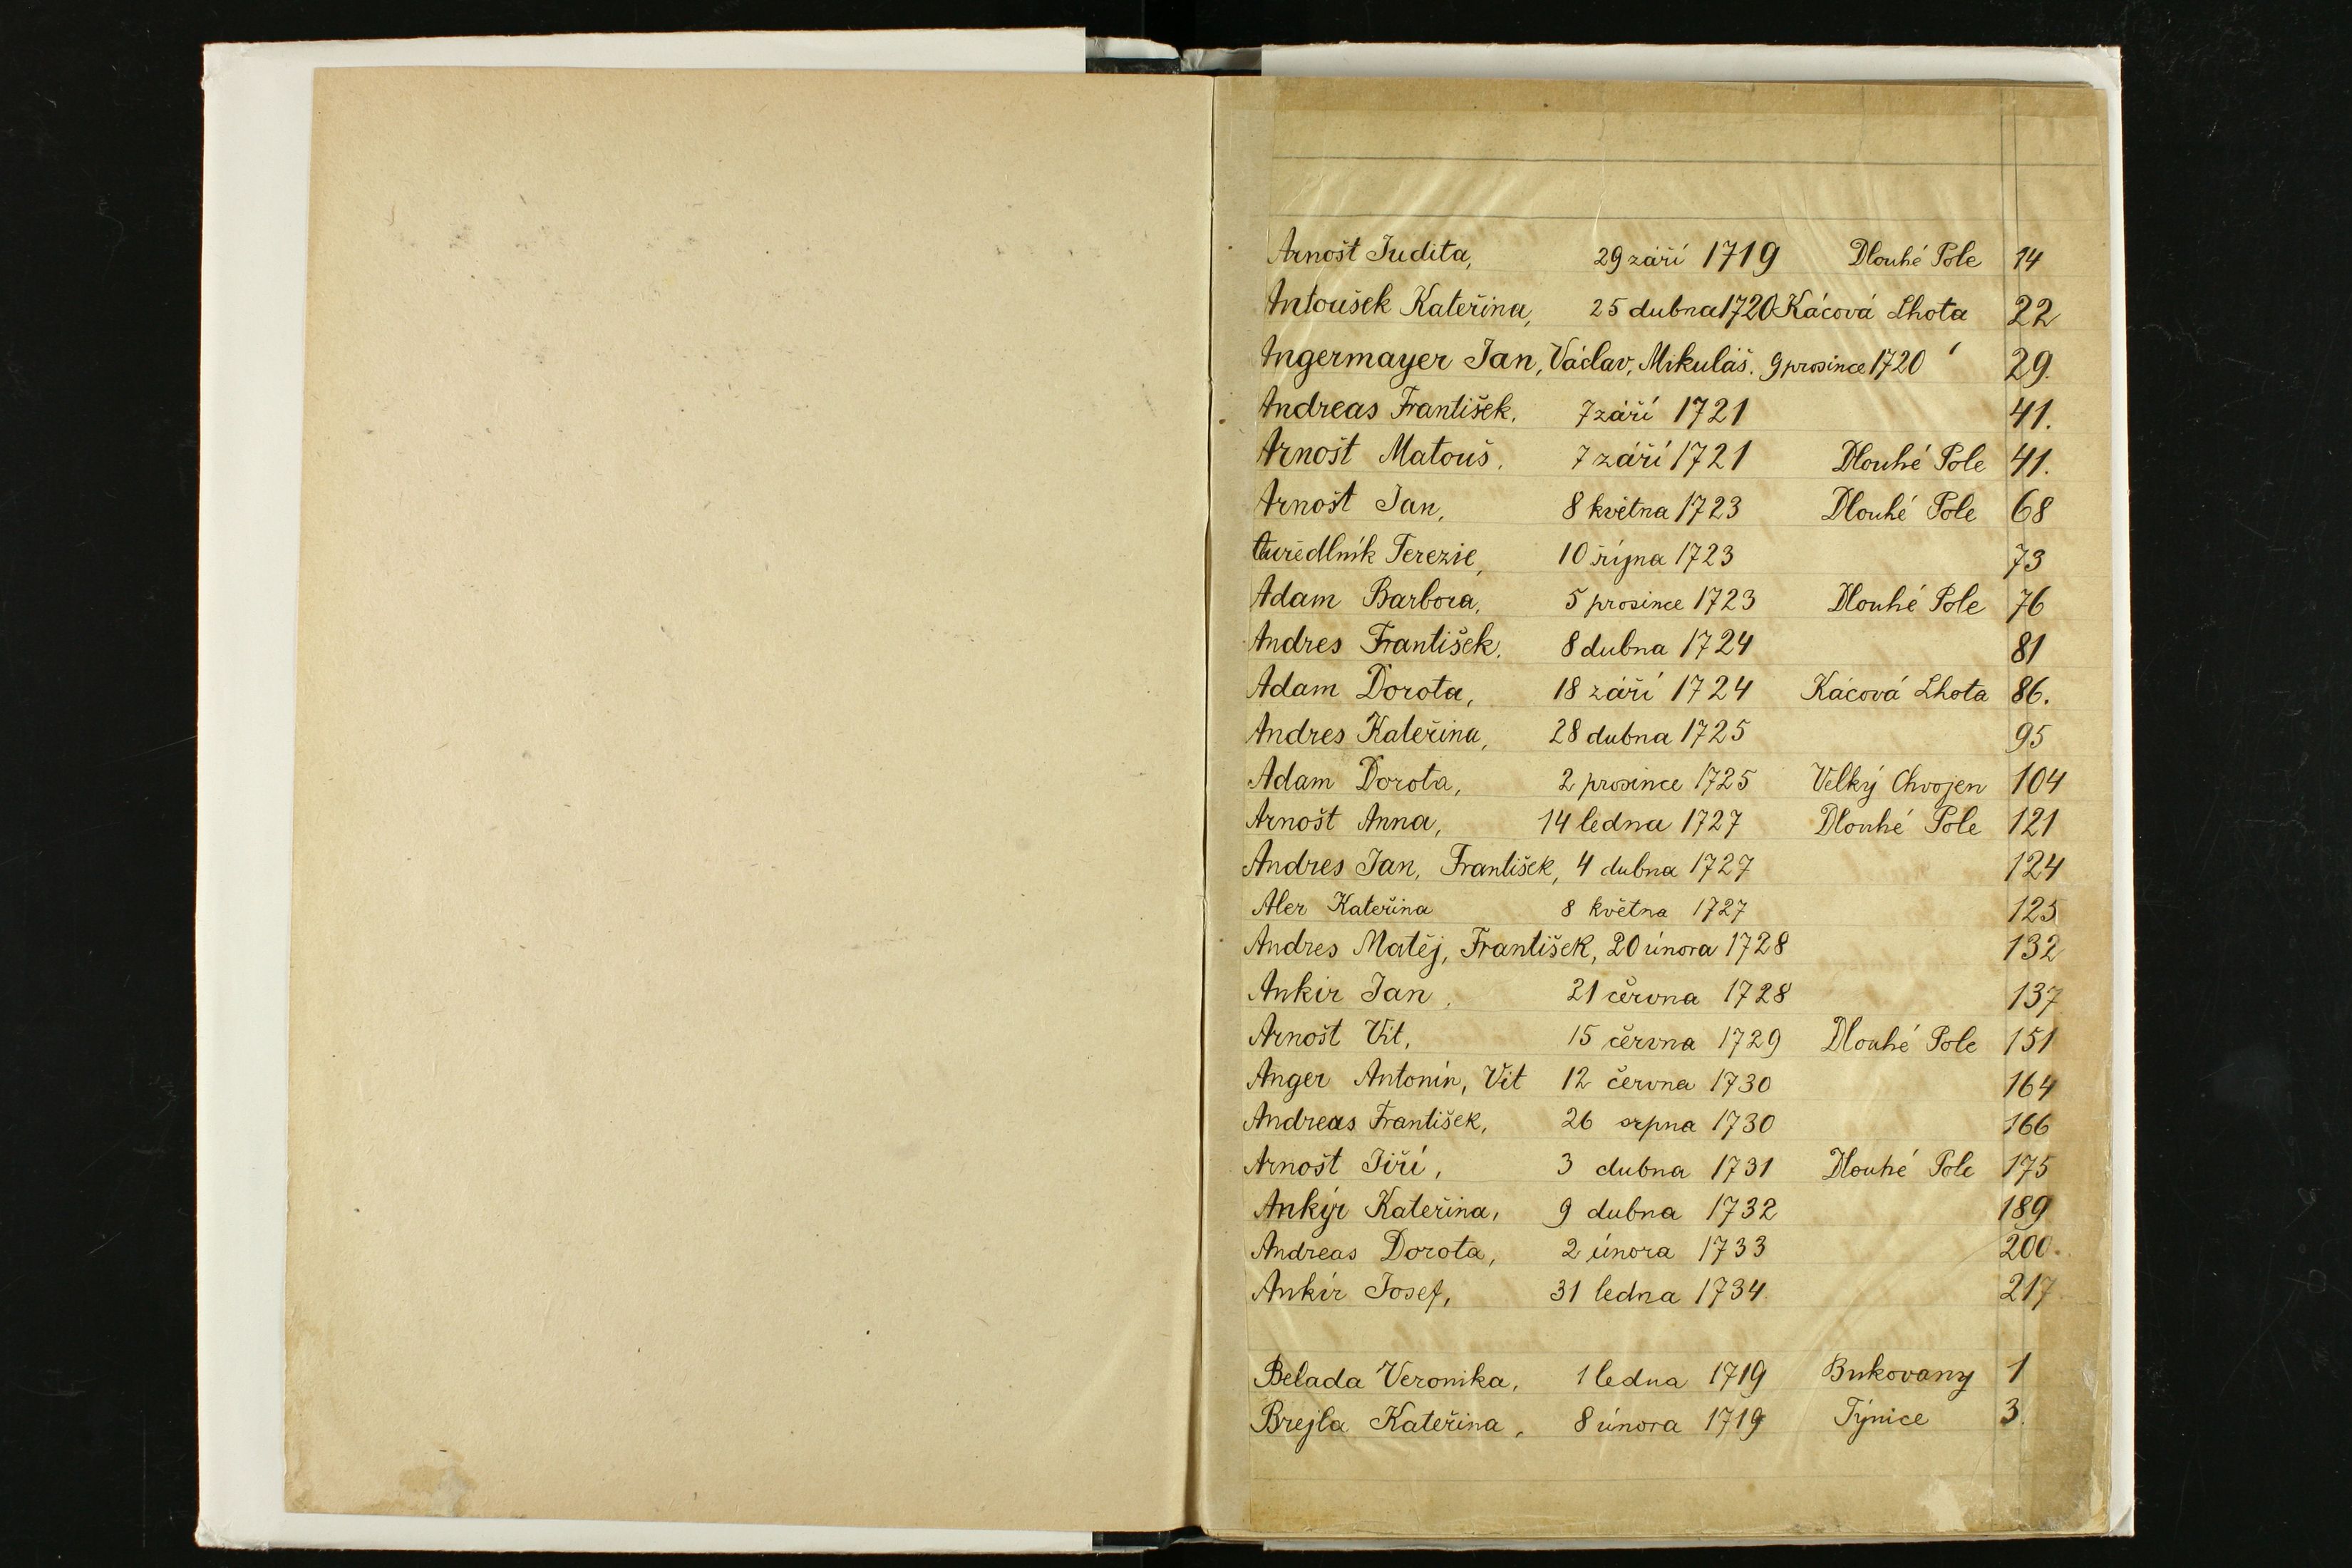 Arnošt Judita, 29 září 1719 Dlouhé Pole 14
Antoušek Kateřina, 25 dubna 1720 Kácová Lhota 22
Angermayer Jan, Václav, Mikuláš. 9 prosince 1720 29.
Andreas František. 7 září 1721 41.
Arnošt Matouš. 7 září 1721 Dlouhé Pole 41.
Arnošt Jan, 8 května 1723 Dlouhé Pole 68
Terezie, 10 října 1723 73
Adam Barbora, 5 prosince 1723 Dlouhé Pole 76
Andres František. 8 dubna 1724 81
Adam Dorota, 18 září 1724 Kácová Lhota 86.
Andres Kateřina, 28 dubna 1725 95
Adam Dorota, 2 prosince 1725 Velký Chvojen 104
Arnošt Anna, 14 ledna 1727 Dlouhé Pole 121
Andres Jan, František, 4 dubna 1727 124
Aler Kateřina 8 května 1727 125
Andres Matěj, František, 20 února 1728 132
Ankír Jan, 21 června 1728 137
Arnošt Vít, 15 června 1729 Dlouhé Pole 151
Anger Antonín, Vít 12 června 1730 164
Andreas František, 26 srpna 1730 166
Arnošt Jiří, 3 dubna 1731 Dlouhé Pole 175
Ankýr Kateřina, 9 dubna 1732 189
Andreas Dorota, 2 února 1733 200.
Ankír Josef, 31 ledna 1734. 217
Belada Veronika, 1 ledna 1719 Bukovany 1
Brejla Kateřina, 8 února 1719 Týnice 3.